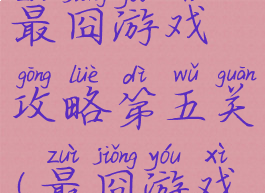 最囧游戏
gōng lüè dì wǔ guān
攻略第五关
zuì jiǒng yóu xì
(最囧游戏